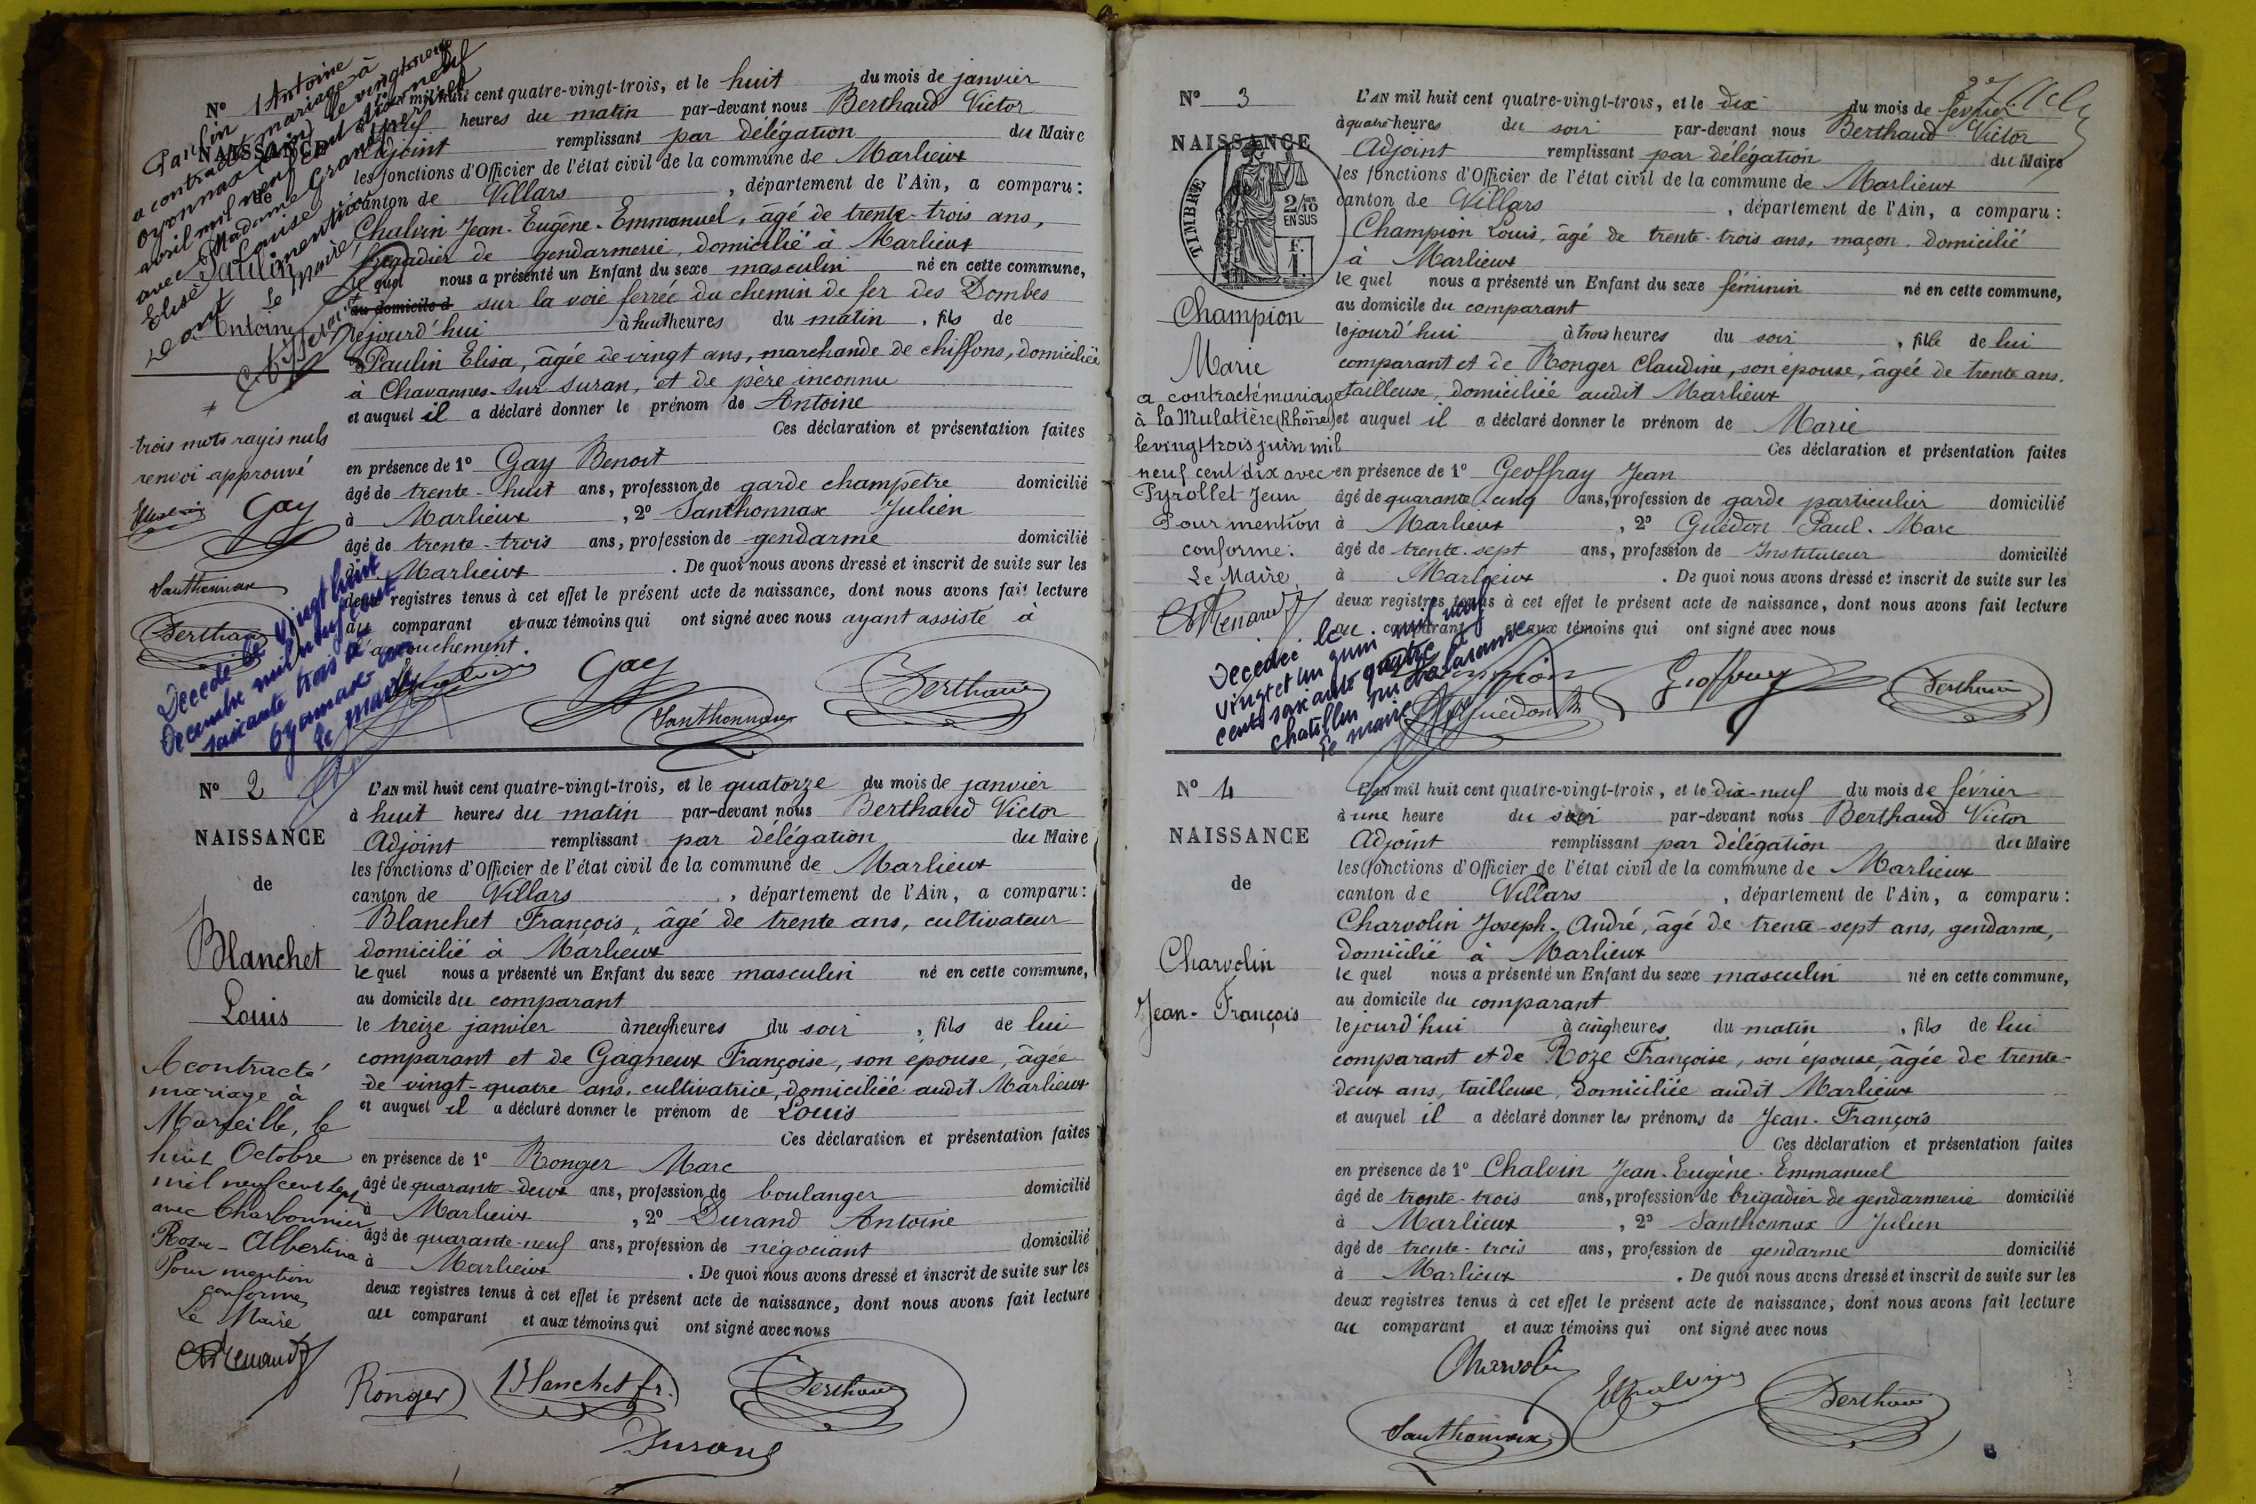 N° 1
NAISSANCE
de
Paulin
Antoine
Paulin Antoine
a contracté mariage à
Oyonnax (Ain) le vingt-neuf
avril mil neuf cent dix-neuf
avec Madame Grandperret
Elise Louise
Dont mention
Le Maire
L'AN mil huit cent quatre-vingt-trois, et le huit du mois de janvier
heures du matin par-devant nous Berthaud Victor
Adjoint remplissant par délégation du Maire
les fonctions d'Officier de l'état civil de la commune de Marlieux
canton de Villars, département de l'Ain, a comparu:
Chalvin Jean-Eugène-Emmanuel, âgé de trente-trois ans,
brigadier de gendarmerie, domicilié à Marlieux
le quel nous a présenté un Enfant du sexe masculin né en cette commune,
au domicile d sur la voie ferrée du chemin de fer des Dombes
le jourd'hui à huit heures du matin, fils de
Paulin Elisa, âgée de vingt ans, marchande de chiffons, domiciliée
à Chavannes-sur-Suran, et de père inconnu
et auquel il a déclaré donner le prénom de Antoine
Ces déclaration et présentation faites
en présence de 1° Gay Benoit
âgé de trente-huit ans, profession de garde champêtre domicilié
à Marlieux, 2° Santhonnax Julien
âgé de trente-trois ans, profession de gendarme domicilié
à Marlieux. De quoi nous avons dressé et inscrit de suite sur les
deux registres tenus à cet effet le présent acte de naissance, dont nous avons fait lecture
au comparant et aux témoins qui ont signé avec nous ayant assisté à
l'accouchement.
trois mots rayés nuls
renvoi approuvé
Chalvin Gay
Santhonnax
Berthaud
Décédé le vingt huit
décembre mil neuf cent
soixante trois à
Oyonnax
Le Maire
Chalvin Gay Berthaud
Santhonnax
N° 2
NAISSANCE
de
Blanchet
Louis
A contracté
mariage à
Marseille, le
huit Octobre
mil neuf cent sept
avec Charbonnier
Rose-Albertine
Pour mention
conforme
Le Maire
Renaud
L'AN mil huit cent quatre-vingt-trois, et le quatorze du mois de janvier
à huit heures du matin par-devant nous Berthaud Victor
Adjoint remplissant par délégation du Maire
les fonctions d'Officier de l'état civil de la commune de Marlieux
canton de Villars, département de l'Ain, a comparu:
Blanchet François, âgé de trente ans, cultivateur
domicilié à Marlieux
le quel nous a présenté un Enfant du sexe masculin né en cette commune,
au domicile du comparant
le treize janvier à neuf heures du soir, fils de lui
comparant et de Gagneux Françoise, son épouse, âgée
de vingt-quatre ans, cultivatrice, domiciliée audit Marlieux
et auquel il a déclaré donner le prénom de Louis
Ces déclaration et présentation faites
en présence de 1° Ronger Marc
âgé de quarante-deux ans, profession de boulanger domicilié
à Marlieux, 2° Durand Antoine
âgé de quarante-neuf ans, profession de négociant domicilié
à Marlieux. De quoi nous avons dressé et inscrit de suite sur les
deux registres tenus à cet effet le présent acte de naissance, dont nous avons fait lecture
au comparant et aux témoins qui ont signé avec nous
Ronger Blanchet fr. Berthaud
Durand
N° 3
NAISSANCE
TIMBRE
2/10
EN SUS
Champion
Marie
a contracté mariage
à la Mulatière (Rhône)
le vingt trois juin mil
neuf cent dix avec
Pyrollet Jean
Pour mention
conforme:
Le Maire
Renaud
L'AN mil huit cent quatre-vingt-trois, et le dix du mois de février
à quatre heures du soir par-devant nous Berthaud Victor
Adjoint remplissant par délégation du Maire
les fonctions d'Officier de l'état civil de la commune de Marlieux
canton de Villars, département de l'Ain, a comparu:
Champion Louis, âgé de trente-trois ans, maçon, domicilié
à Marlieux
le quel nous a présenté un Enfant du sexe féminin né en cette commune,
au domicile du comparant
le jourd'hui à trois heures du soir, fille de lui
comparant et de Ronger Claudine, son épouse, âgée de trente ans,
tailleuse, domiciliée audit Marlieux
et auquel il a déclaré donner le prénom de Marie
Ces déclaration et présentation faites
en présence de 1° Geoffray Jean
âgé de quarante-cinq ans, profession de garde particulier domicilié
à Marlieux, 2° Guédon Paul-Marc
âgé de trente-sept ans, profession de Instituteur domicilié
à Marlieux. De quoi nous avons dressé et inscrit de suite sur les
deux registres tenus à cet effet le présent acte de naissance, dont nous avons fait lecture
au comparant et aux témoins qui ont signé avec nous
Décédée le
vingt et un juin mil neuf
cent soixante quatre à
Chatillon sur Chalaronne
Le maire
Champion Geoffray Berthaud
Guédon
N° 4
NAISSANCE
de
Charvolin
Jean-François
L'AN mil huit cent quatre-vingt-trois, et le dix-neuf du mois de février
à une heure du soir par-devant nous Berthaud Victor
Adjoint remplissant par délégation du Maire
les fonctions d'Officier de l'état civil de la commune de Marlieux
canton de Villars, département de l'Ain, a comparu:
Charvolin Joseph-André, âgé de trente-sept ans, gendarme,
domicilié à Marlieux
le quel nous a présenté un Enfant du sexe masculin né en cette commune,
au domicile du comparant
le jourd'hui à cinq heures du matin, fils de lui
comparant et de Roze Françoise, son épouse, âgée de trente-
deux ans, tailleuse, domiciliée audit Marlieux
et auquel il a déclaré donner les prénoms de Jean-François
Ces déclaration et présentation faites
en présence de 1° Chalvin Jean-Eugène-Emmanuel
âgé de trente-trois ans, profession de brigadier de gendarmerie domicilié
à Marlieux, 2° Santhonnax Julien
âgé de trente-trois ans, profession de gendarme domicilié
à Marlieux. De quoi nous avons dressé et inscrit de suite sur les
deux registres tenus à cet effet le présent acte de naissance, dont nous avons fait lecture
au comparant et aux témoins qui ont signé avec nous
Charvolin Chalvin Berthaud
Santhonnax